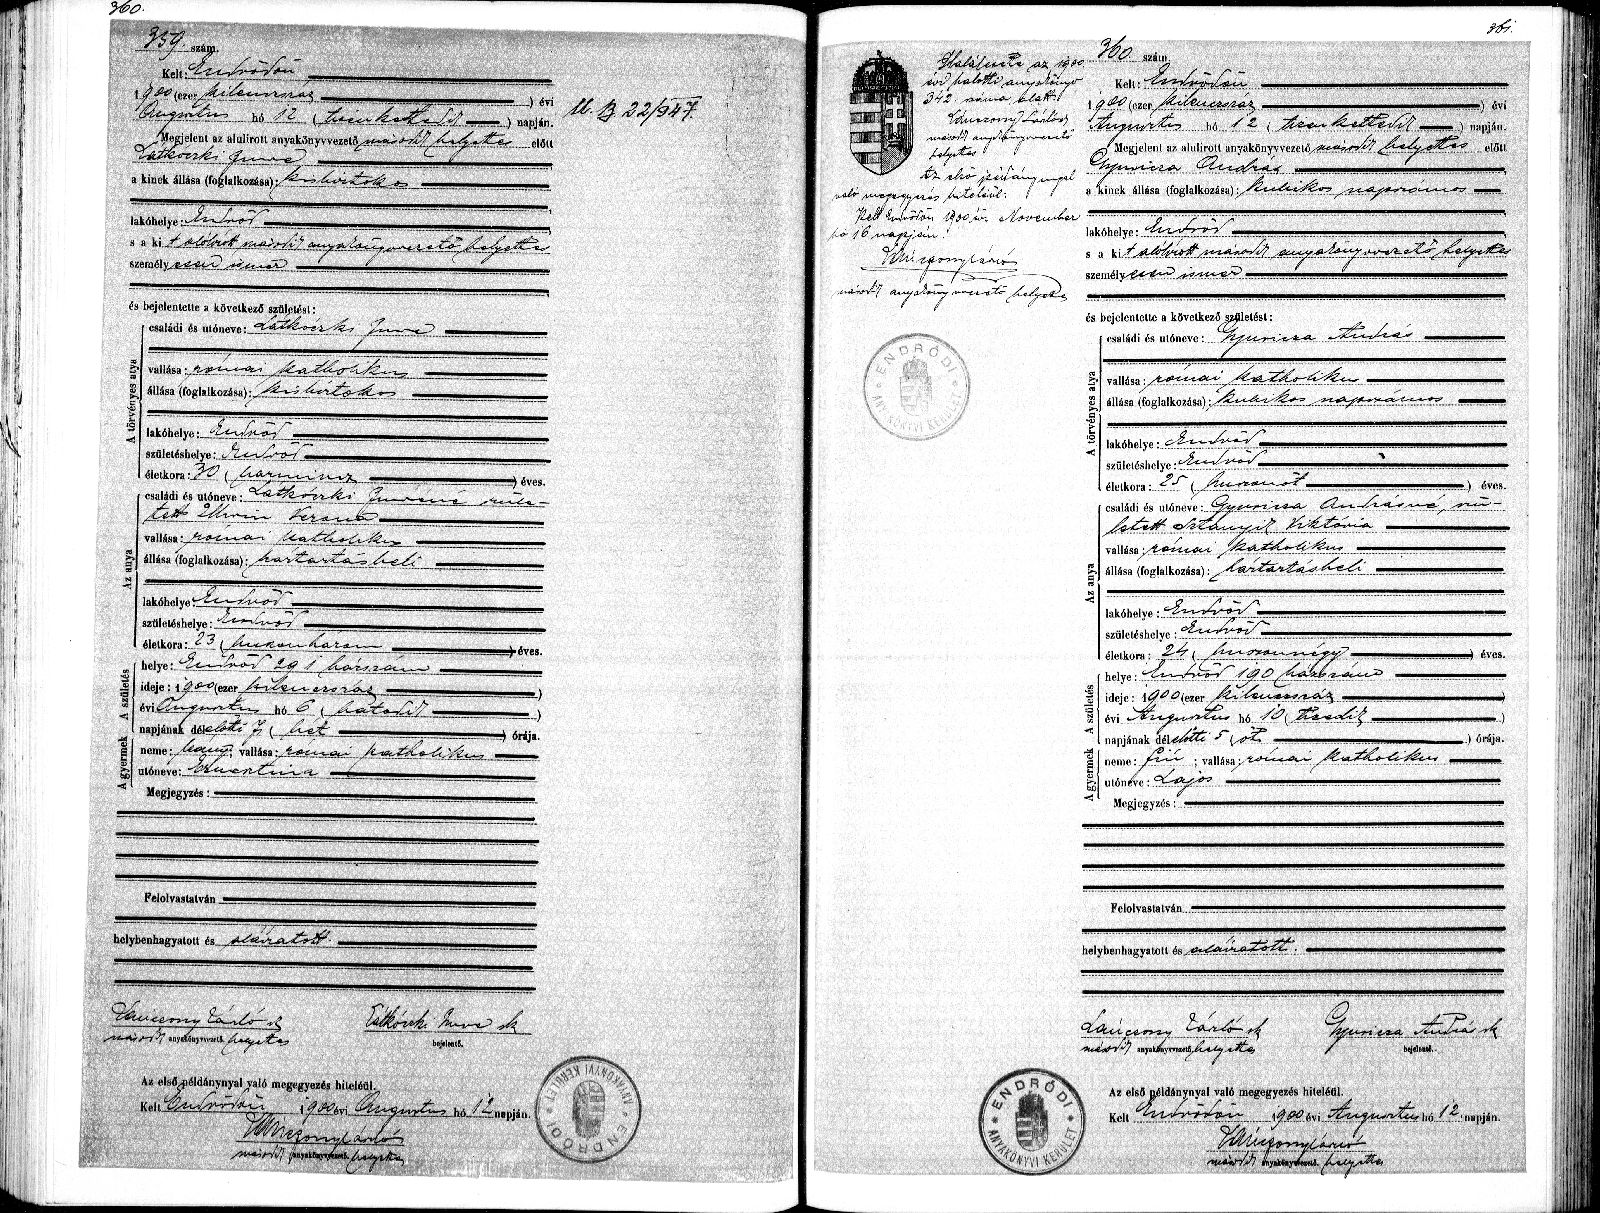 360.
359. szám.
Kelt: Endrődön
1900 (ezer kilenczszáz ) évi
Augustus hó 12 ( tizenkettedik ) napján.
Megjelent az alulirott anyakönyvvezető második helyettes előtt
Latkóczki Imre
a kinek állása (foglalkozása): kisbirtokos
lakóhelye: Endrőd
s a kit alólirott második anyakönyvvezető helyettes
személyesen ismer
és bejelentette a következő születést:
A törvényes atya
családi és utóneve: Latkóczki Imre
vallása: római katholikus
állása (foglalkozása): kisbirtokos
lakóhelye: Endrőd
születéshelye: Endrőd
életkora: 30 ( harmincz ) éves.
Az anya
családi és utóneve: Latkóczki Imréné szüle-
tett Verona
vallása: római katholikus
állása (foglalkozása): háztartásbeli
lakóhelye: Endrőd
születéshelye: Endrőd
életkora: 23 ( huszonhárom ) éves.
A születés
helye: Endrőd 291 házszám
ideje: 1900 (ezer kilenczszáz )
évi Augustus hó 6 ( hatodik )
napjának délelőtti 7 ( hét ) órája.
A gyermek
neme: leány; vallása: római katholikus
utóneve: Ernesztina
Megjegyzés:
Felolvastatván
helybenhagyatott és aláiratott.
Lánczony László sk
második anyakönyvvezető helyettes
Latkóczki Imre sk
bejelentő.
Az első példánynyal való megegyezés hiteléül.
Kelt Endrődön 1900 évi Augustus hó 12 napján.
Lánczony László
második anyakönyvvezető helyettes
ENDRŐDI ANYAKÖNYVI KERÜLET
22/947.
361.
Halálesete az 1900
évi halotti anyakönyv
342 száma alatt.
Lánczony László
második anyakönyvvezető
helyettes
Az első példánynyal
való megegyezés hiteléül.
Kelt Endrődön 1900 évi November
hó 16 napján.
Lánczony László
második anyakönyvvezető helyettes
ENDRŐDI ANYAKÖNYVI KERÜLET
360. szám.
Kelt: Endrődön
1900 (ezer kilenczszáz ) évi
Augustus hó 12 ( tizenkettedik ) napján.
Megjelent az alulirott anyakönyvvezető második helyettes előtt
Gyuricza András
a kinek állása (foglalkozása): kubikos napszámos
lakóhelye: Endrőd
s a kit alólirott második anyakönyvvezető helyettes
személyesen ismer
és bejelentette a következő születést:
A törvényes atya
családi és utóneve: Gyuricza András
vallása: római katholikus
állása (foglalkozása): kubikos napszámos
lakóhelye: Endrőd
születéshelye: Endrőd
életkora: 25 ( huszonöt ) éves.
Az anya
családi és utóneve: Gyuricza Andrásné, szü-
letett Sztanyik Viktória
vallása: római katholikus
állása (foglalkozása): háztartásbeli
lakóhelye: Endrőd
születéshelye: Endrőd
életkora: 24 ( huszonnégy ) éves.
A születés
helye: Endrőd 190 házszám
ideje: 1900 (ezer kilenczszáz )
évi Augustus hó 10 ( tizedik )
napjának délelőtti 5 ( öt ) órája.
A gyermek
neme: fiú; vallása: római katholikus
utóneve: Lajos
Megjegyzés:
Felolvastatván
helybenhagyatott és aláiratott.
Lánczony László sk
második anyakönyvvezető helyettes
Gyuricza András sk
bejelentő.
Az első példánynyal való megegyezés hiteléül.
Kelt Endrődön 1900 évi Augustus hó 12 napján.
Lánczony László
második anyakönyvvezető helyettes
ENDRŐDI ANYAKÖNYVI KERÜLET